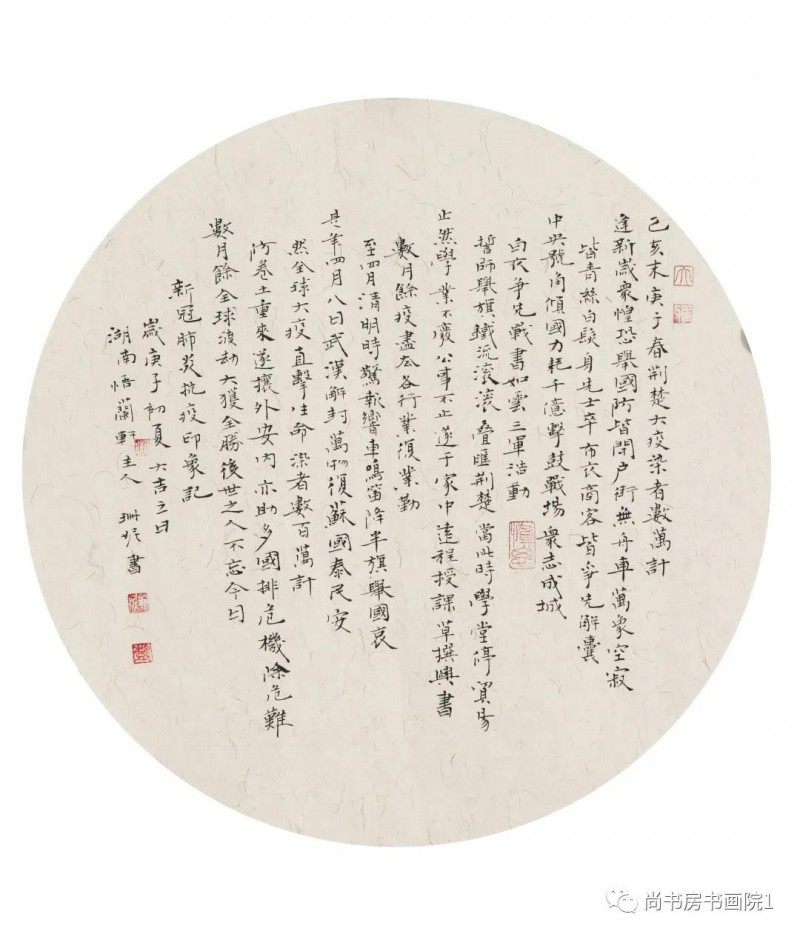 己亥末庚子春荆楚大疫染者數萬計
逢新歲衆惶恐舉國防皆閉户街無舟車萬象空寂
皆青絲白髮身先士卒布衣商客皆爭先解囊
中央號角傾國力耗千億擊鼓戰揚衆志成城
白衣爭先戰書如雲三軍浩動
誓師舉旗鐵流滚滚疊匯荆楚當此時學堂停貿易
止然學業不廢公事不止遂于家中遠程授課草撰興書
數月餘疫盡瓜各行業復業勤
至四月清明時驚報響車鳴笛降半旗舉國哀
是年四月八日武漢解封萬物復蘇國泰民安
然全球大疫直擊生命染者數百萬計
卷土重來遂攘外安内亦助多國排危機除危難
數月餘全球渡劫大獲全勝後世之人不忘今日
新冠肺炎抗疫印象記
歲庚子初夏大吉之日
湖南悟蘭軒主人 書
尚书房书画院1